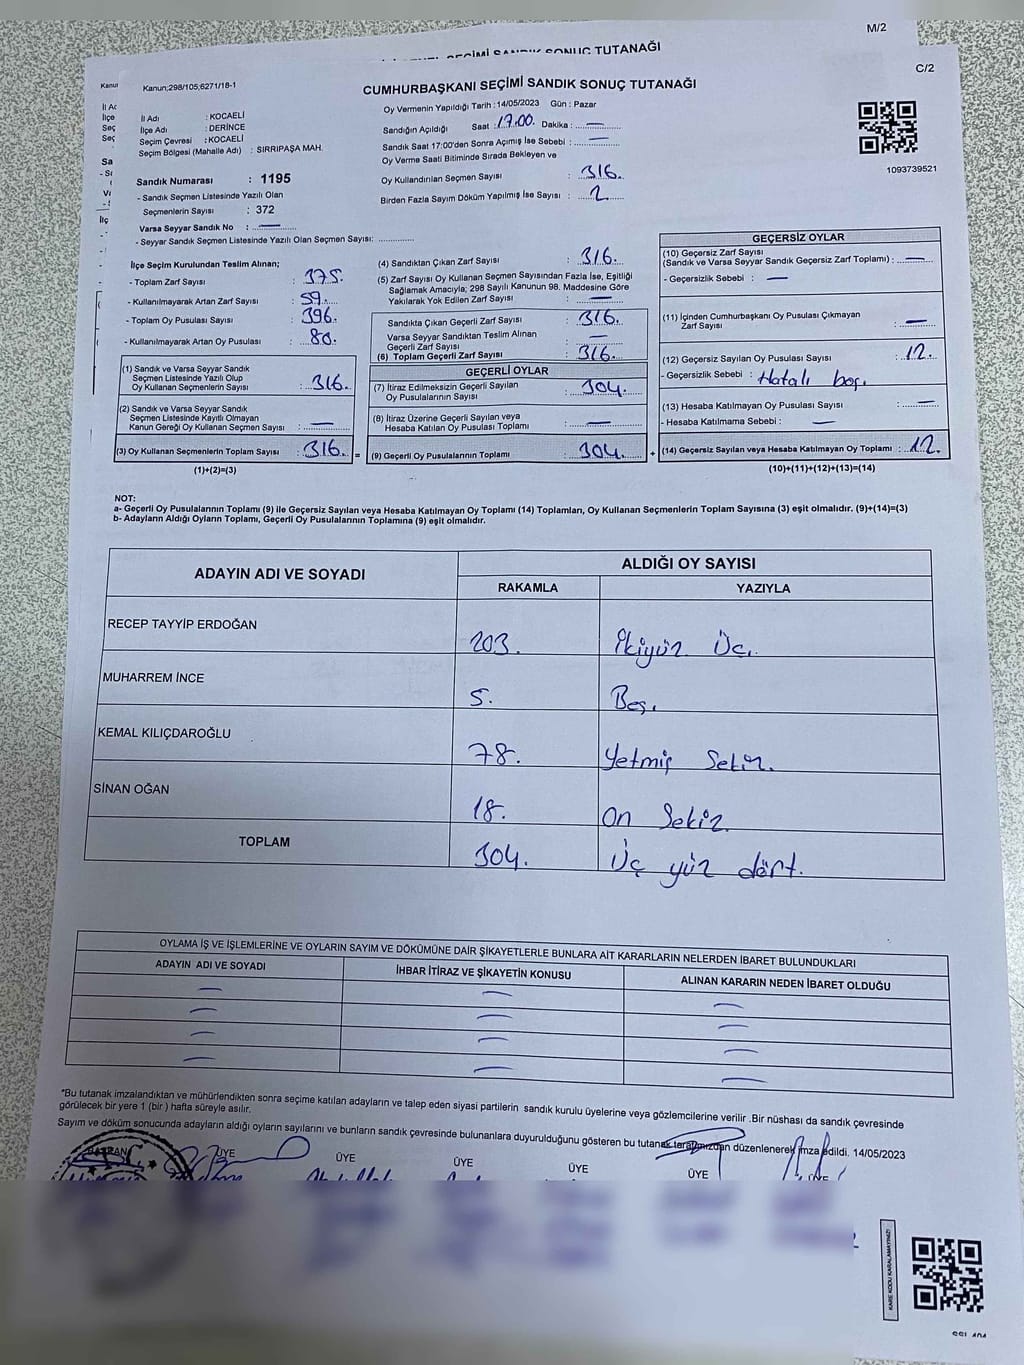 M/2
SEÇİMİ SANDIK SONUÇ TUTANAĞI
C/2
Kanun;298/105,6271/18-1
CUMHURBAŞKANI SEÇİMİ SANDIK SONUÇ TUTANAĞI
İl Adı : KOCAELİ
İlçe Adı : DERİNCE
Seçim Çevresi : KOCAELİ
Seçim Bölgesi (Mahalle Adı) : SIRRIPAŞA MAH.
Sandık Numarası : 1195
- Sandık Seçmen Listesinde Yazılı Olan
Seçmenlerin Sayısı : 372
Varsa Seyyar Sandık No : —
- Seyyar Sandık Seçmen Listesinde Yazılı Olan Seçmen Sayısı: ............
Oy Vermenin Yapıldığı Tarih : 14/05/2023 Gün : Pazar
Sandığın Açıldığı Saat : 17.00. Dakika : —
Sandık Saat 17:00'den Sonra Açımış İse Sebebi : —
Oy Verme Saati Bitiminde Sırada Bekleyen ve
Oy Kullandırılan Seçmen Sayısı : 316.
Birden Fazla Sayım Döküm Yapılmış İse Sayısı : 2
1093739521
İlçe Seçim Kurulundan Teslim Alınan;
- Toplam Zarf Sayısı : 375.
- Kullanılmayarak Artan Zarf Sayısı : 59.
- Toplam Oy Pusulası Sayısı : 396.
- Kullanılmayarak Artan Oy Pusulası : 80.
(1) Sandık ve Varsa Seyyar Sandık
Seçmen Listesinde Yazılı Olup
Oy Kullanan Seçmenlerin Sayısı : 316.
(2) Sandık ve Varsa Seyyar Sandık
Seçmen Listesinde Kayıtlı Olmayan
Kanun Gereği Oy Kullanan Seçmen Sayısı : —
(3) Oy Kullanan Seçmenlerin Toplam Sayısı : 316. =
(1)+(2)=(3)
(4) Sandıktan Çıkan Zarf Sayısı : 316.
(5) Zarf Sayısı Oy Kullanan Seçmen Sayısından Fazla İse, Eşitliği
Sağlamak Amacıyla; 298 Sayılı Kanunun 98. Maddesine Göre
Yakılarak Yok Edilen Zarf Sayısı : —
Sandıkta Çıkan Geçerli Zarf Sayısı : 316.
Varsa Seyyar Sandıktan Teslim Alınan
Geçerli Zarf Sayısı : —
(6) Toplam Geçerli Zarf Sayısı : 316.
GEÇERLİ OYLAR
(7) İtiraz Edilmeksizin Geçerli Sayılan
Oy Pusulalarının Sayısı : 304.
(8) İtiraz Üzerine Geçerli Sayılan veya
Hesaba Katılan Oy Pusulaları Toplamı : —
(9) Geçerli Oy Pusulalarının Toplamı : 304. +
GEÇERSİZ OYLAR
(10) Geçersiz Zarf Sayısı
(Sandık ve Varsa Seyyar Sandık Geçersiz Zarf Toplamı) : —
- Geçersizlik Sebebi : —
(11) İçinden Cumhurbaşkanı Oy Pusulası Çıkmayan
Zarf Sayısı : —
(12) Geçersiz Sayılan Oy Pusulası Sayısı : 12.
- Geçersizlik Sebebi : Hatalı boş.
(13) Hesaba Katılmayan Oy Pusulası Sayısı : —
- Hesaba Katılmama Sebebi : —
(14) Geçersiz Sayılan veya Hesaba Katılmayan Oy Toplamı : 12.
(10)+(11)+(12)+(13)=(14)
NOT:
a- Geçerli Oy Pusulalarının Toplamı (9) ile Geçersiz Sayılan veya Hesaba Katılmayan Oy Toplamı (14) Toplamları, Oy Kullanan Seçmenlerin Toplam Sayısına (3) eşit olmalıdır. (9)+(14)=(3)
b- Adayların Aldığı Oyların Toplamı, Geçerli Oy Pusulalarının Toplamına (9) eşit olmalıdır.
ADAYIN ADI VE SOYADI ALDIĞI OY SAYISI
RAKAMLA YAZIYLA
RECEP TAYYİP ERDOĞAN 203. İkiyüz Üç.
MUHARREM İNCE 5. Beş.
KEMAL KILIÇDAROĞLU 78. Yetmiş Sekiz.
SİNAN OĞAN 18. On Sekiz.
TOPLAM 304. Üç yüz dört.
OYLAMA İŞ VE İŞLEMLERİNE VE OYLARIN SAYIM VE DÖKÜMÜNE DAİR ŞİKAYETLERLE BUNLARA AİT KARARLARIN NELERDEN İBARET BULUNDUKLARI
ADAYIN ADI VE SOYADI İHBAR İTİRAZ VE ŞİKAYETİN KONUSU ALINAN KARARIN NEDEN İBARET OLDUĞU
— — —
— — —
— — —
— — —
*Bu tutanak imzalandıktan ve mühürlendikten sonra seçime katılan adayların ve talep eden siyasi partilerin sandık kurulu üyelerine veya gözlemcilerine verilir .Bir nüshası da sandık çevresinde
görülecek bir yere 1 (bir ) hafta süreyle asılır.
Sayım ve döküm sonucunda adayların aldığı oyların sayılarını ve bunların sandık çevresinde bulunanlara duyurulduğunu gösteren bu tutanak tarafımızdan düzenlenerek imza edildi. 14/05/2023
BAŞKAN ÜYE ÜYE ÜYE ÜYE ÜYE ÜYE
KARE KODU KARALAMAYINIZ!